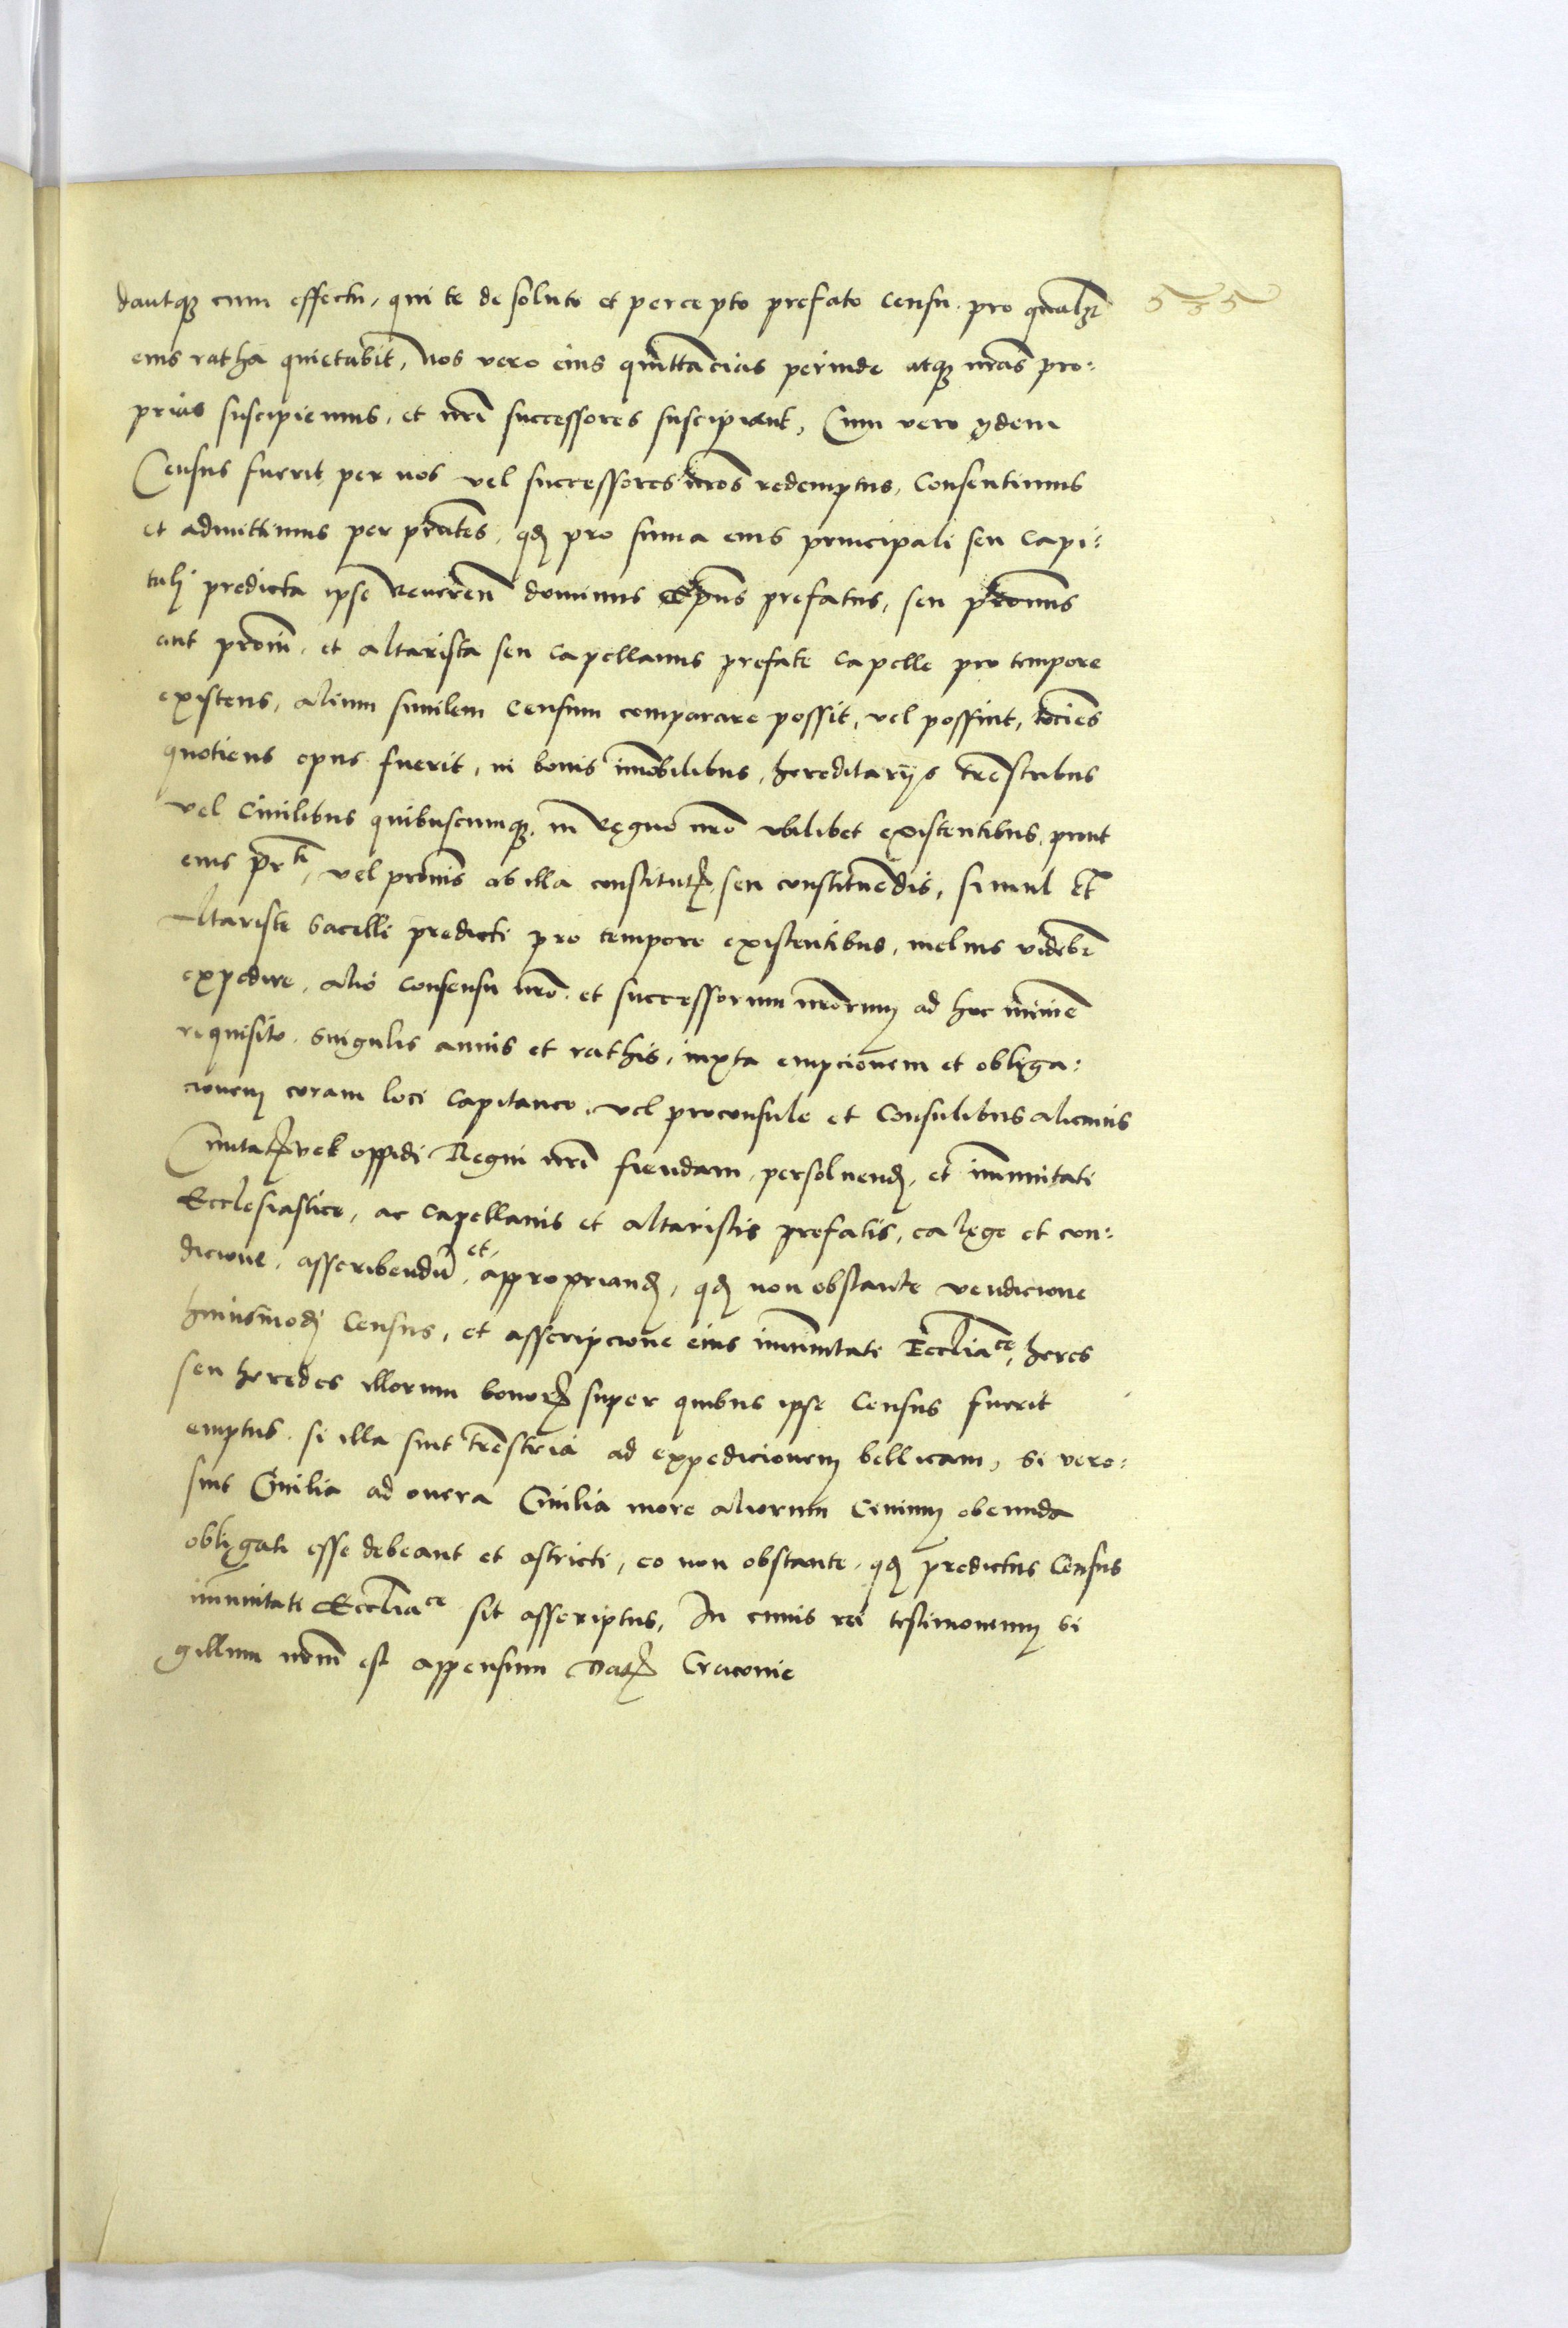 dantq₃ cum effectu, qui te de soluto et percepto prefato Censu pro qualꝫ 535
eius ratha quietabit, Nos vero eius quittãcias perinde atq₃ nr̃as pro:
prias suscipiemus, et nr̃i successores suscipiant, Cum vero ydem
Census fuerit per nos vel successores nr̃os redemptus, Consentimus
et admittimus per pñtes, qđ pro suma eius principali seu Capi:
tali predicta ipse Reueren̄ dominus Ep̄us prefatus, seu pr̃onus
aut pr̃oni, et altarista seu Capellanus prefate Capelle pro tempore
existens, alium similem Censum comparare possit, vel possint, tocies
quotiens opus fuerit, in bonis im̃obilibus, hereditarijs terr̃estribus
vel Ciuilibus quibuscumq₃, in Regno nr̃o vbilibet existentibus, prout
eius p̃rti, vel pronis ab illa constitutꝭ seu constituendis, simul et
Altariste Sacelli predicti pro tempore existentibus, melius videbr̃
expedire, alio Consensu nr̃o et successorum nr̃orum ad hoc minime
requisito, Singulis annis et rathis, iuxta empcionem et obliga:
cionem coram loci Capitaneo, vel proconsule et Consulibus alicuius
Ciuitatꝭ vel oppidi Regni nr̃i fiendam, persoluend̄, et im̃unitati
Ecclesiastice, ac Capellanis et altaristis prefatis, ea lege et con:
dicione, asscribendũ et appropriand̄, qđ non obstante vendicione
huiusmodi Census, et asscripcione eius im̃unitati Eccl̃iace, heres
seu heredes illorum bonorꝭ super quibus ipse Census fuerit
emptus, si illa sint terr̃estria ad expedicionem bellicam, Si vero:
sint Ciuilia ad onera Ciuilia more aliorum Ciuium obeunda
obligati esse debeant et astricti, eo non obstante, qđ predictus Census
im̃unitati Eccl̃iace sit asscriptus, In cuius rei testimonium Si
gillum nr̃um est appensum Datꝭ Cracouie